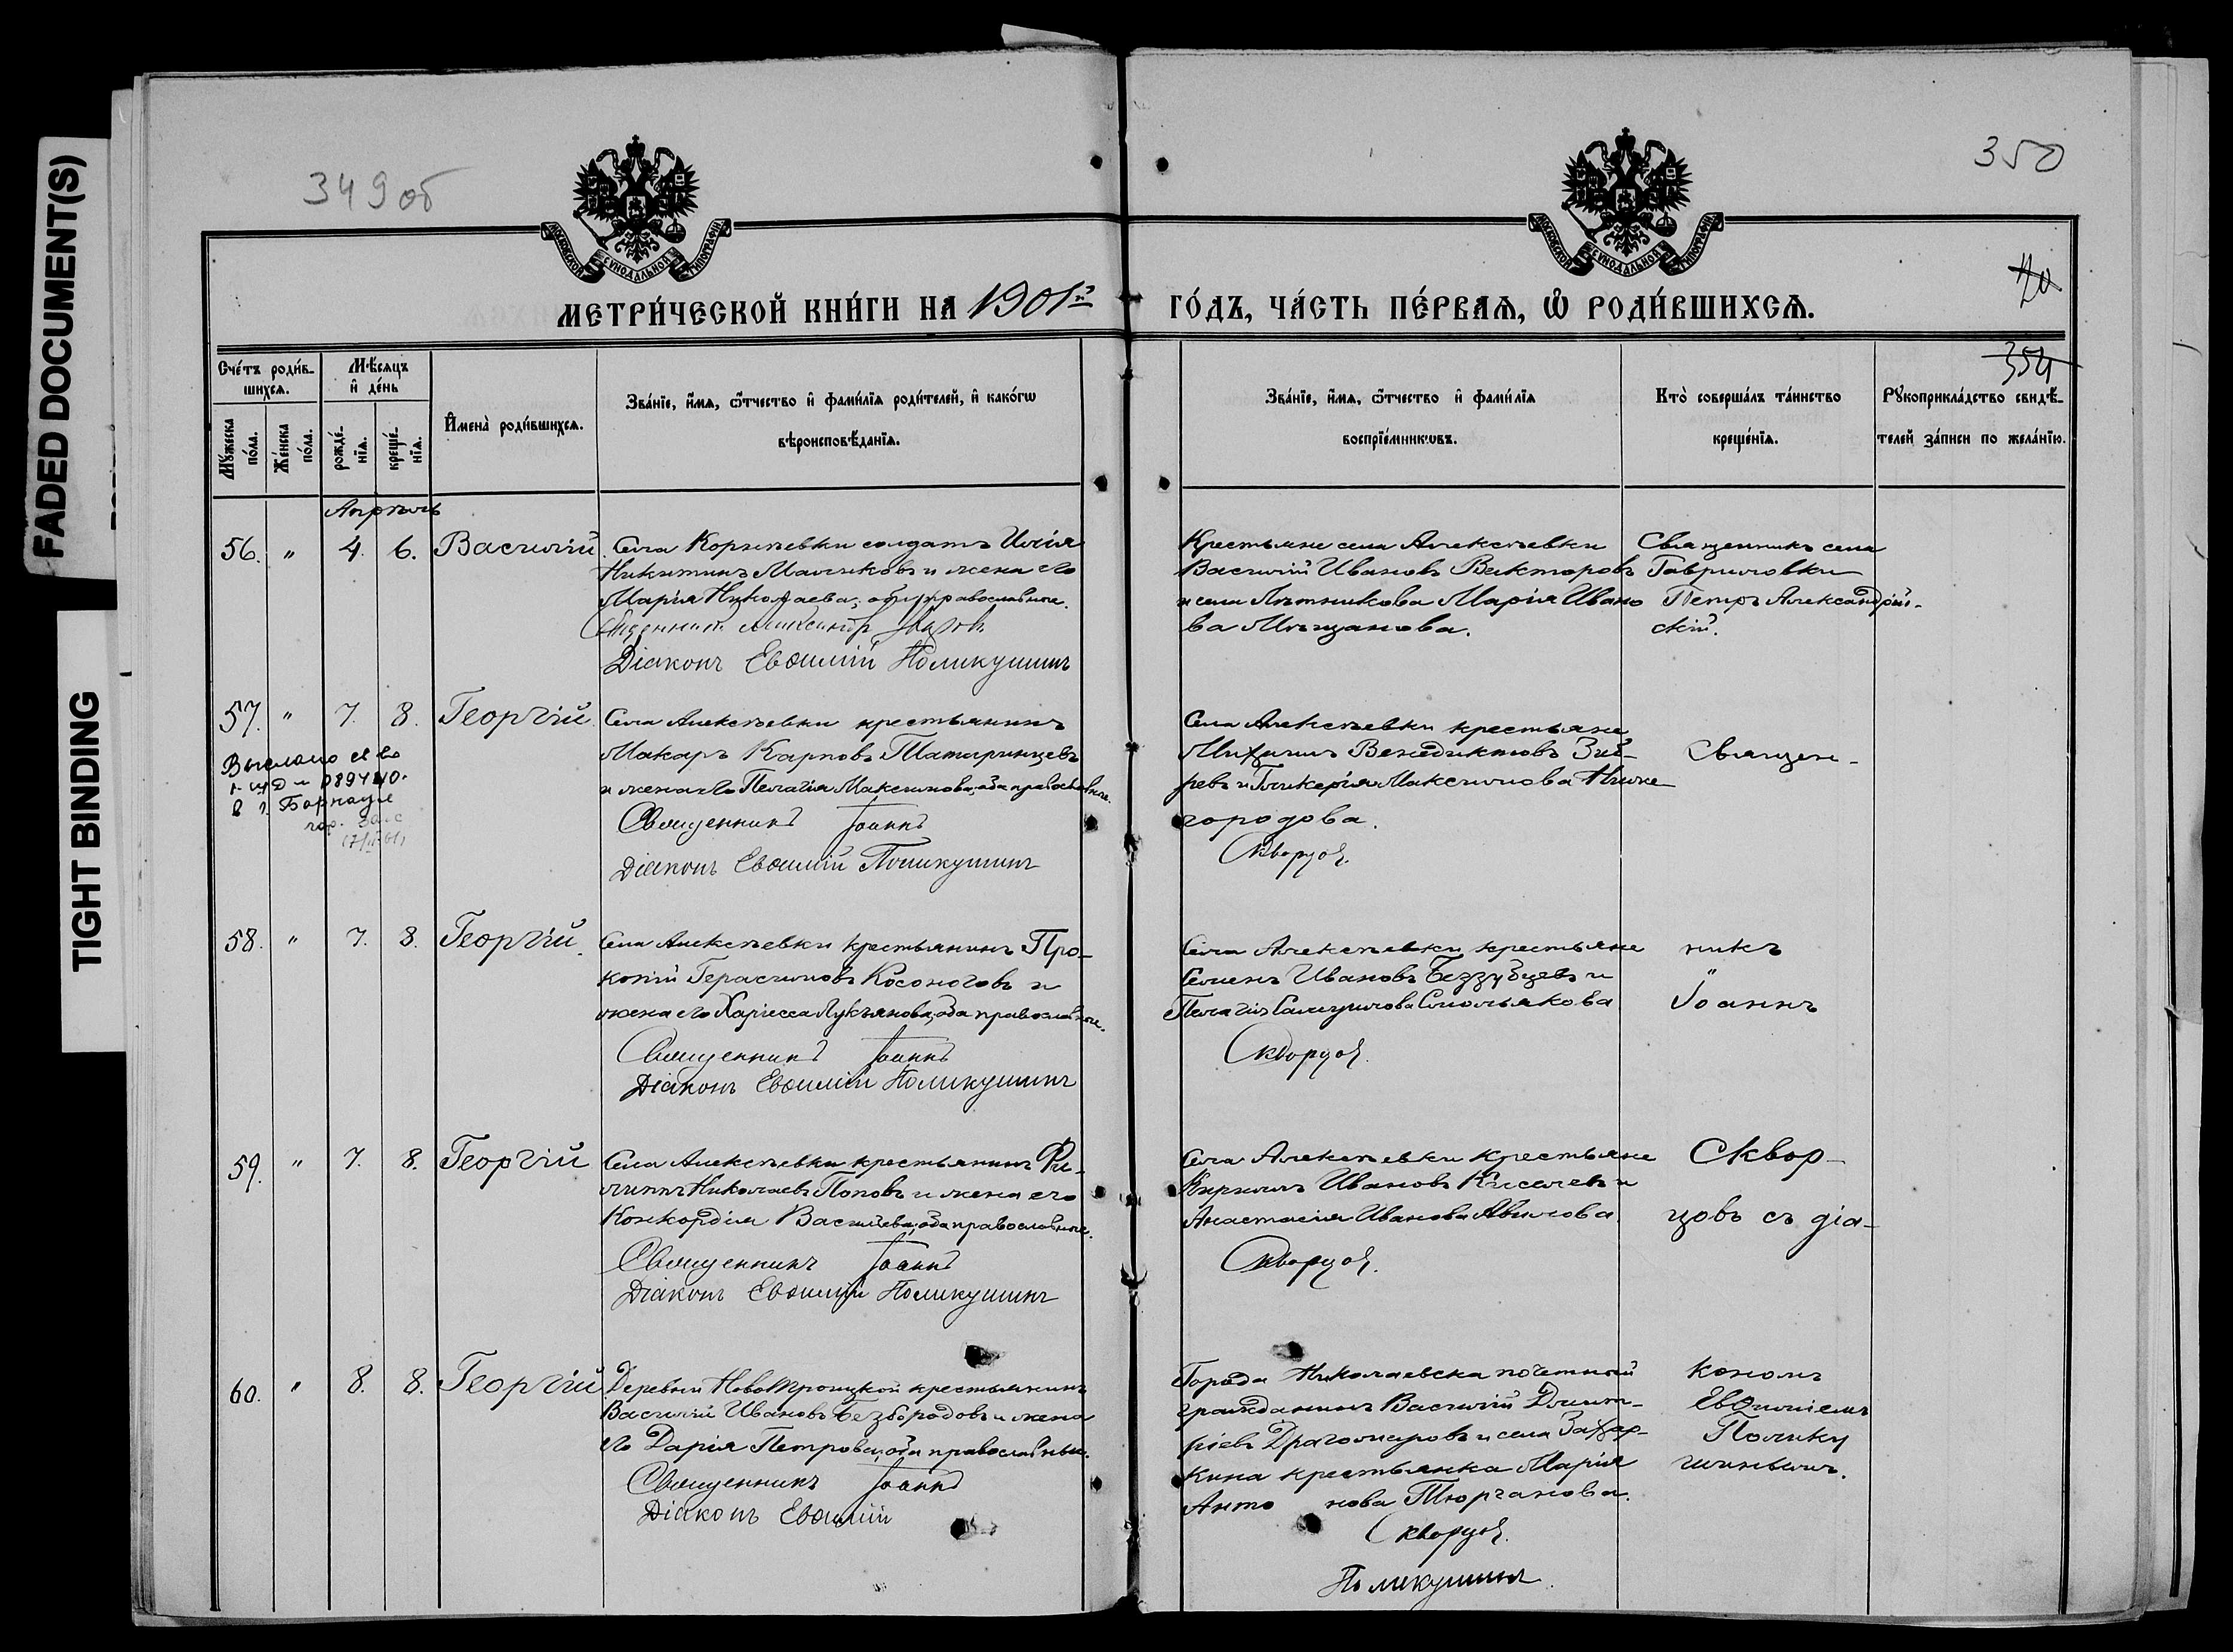 FADED DOCUMENT(S)
TIGHT BINDING
349об
350
МОСКОВСКОЙ СѴНОДАЛЬНОЙ ТИПОГРАФІИ
МОСКОВСКОЙ СѴНОДАЛЬНОЙ ТИПОГРАФІИ
20
354
МЕТРИ́ЧЕСКОЙ КНИ́ГИ НА 1901й ГО́ДЪ, ЧА́СТЬ ПЕ́РВАѦ, Ѽ РОДИ́ВШИХСѦ.
Сче́тъ роди́в-
шихсѧ.
Мꙋ́жеска по́ла.
Же́нска по́ла.
Мѣ́сѧцъ
и҆ де́нь
рожде́-
нїѧ.
креще́-
нїѧ.
И҆мена̀ роди́вшихсѧ.
Зва́нїе, и҆́мѧ, ѻ҆́тчество и҆ фами́лїѧ роди́телей, и҆ како́гѡ
вѣроисповѣ́данїѧ.
Зва́нїе, и҆́мѧ, ѻ҆́тчество и҆ фами́лїѧ
воспрїе́мникѡвъ.
Кто̀ соверша́лъ та́инство
креще́нїѧ.
Рꙋкоприкла́дство свидѣ́-
телей за́писи по жела́нїю.
Апрѣль
56. " 4. 6. Василій
Села Корнѣевки солдатъ Илія
Никитинъ Маликовъ и жена его
Марія Николаева, оба православные.
Діаконъ Евѳимій Поликушинъ
Крестьяне села Алексѣевки
Василій Ивановъ Викторовъ
и села Лѣтникова Марія Ивано
ва Мѣщанова.
Священникъ села
Гавриловки
Петръ Александрій-
скій.
57. " 7. 8. Георгій
Выслано
в г. Барнаул
Села Алексѣевки крестьянинъ
Макаръ Карповъ Татаринцевъ
и жена его Пелагія Максимова, оба православные.
Священникъ Іоаннъ
Діаконъ Евѳимій Поликушинъ
Села Алексѣевки крестьяне
Михаилъ Венедиктовъ Звѣ-
ревъ и Гликерія Максимова Ниже
городова.
Скворцов.
Священ-
58. " 7. 8. Георгій.
Села Алексѣевки крестьянинъ Про-
копій Герасимовъ Косоноговъ и
жена его Хариесса Лукъянова, оба православные.
Священникъ Іоаннъ
Діаконъ Евѳимій Поликушинъ
Села Алексѣевки крестьяне
Семенъ Ивановъ Беззубцевъ и
Пелагія Самуилова Смолькова
Скворцов.
никъ
"
Іоаннъ
59. " 7. 8. Георгій
Села Алексѣевки крестьянинъ Фи-
липпъ Николаевъ Поповъ и жена его
Конкордія Васильева, оба православные.
Священникъ Іоаннъ
Діаконъ Евѳимій Поликушинъ
Села Алексѣевки крестьяне
Кириллъ Ивановъ Киселевъ и
Анастасія Иванова Авилова.
Скворцов.
Сквор-
цовъ съ діа-
60. " 8. 8. Георгій
Деревни НовоТроицкой крестьянинъ
Василій Ивановъ Безбородовъ и жена
его Дарія Петрова, оба православные.
Священникъ Іоаннъ
Діаконъ Евѳимій
Города Николаевска почетный
гражданинъ Василій Димит-
ріевъ Драгомировъ и села Захар-
кина крестьянка Марія
Анто нова Тюрчанова.
Скворцов.
Поликушинъ.
кономъ
Евѳиміемъ
Полику
шинымъ.